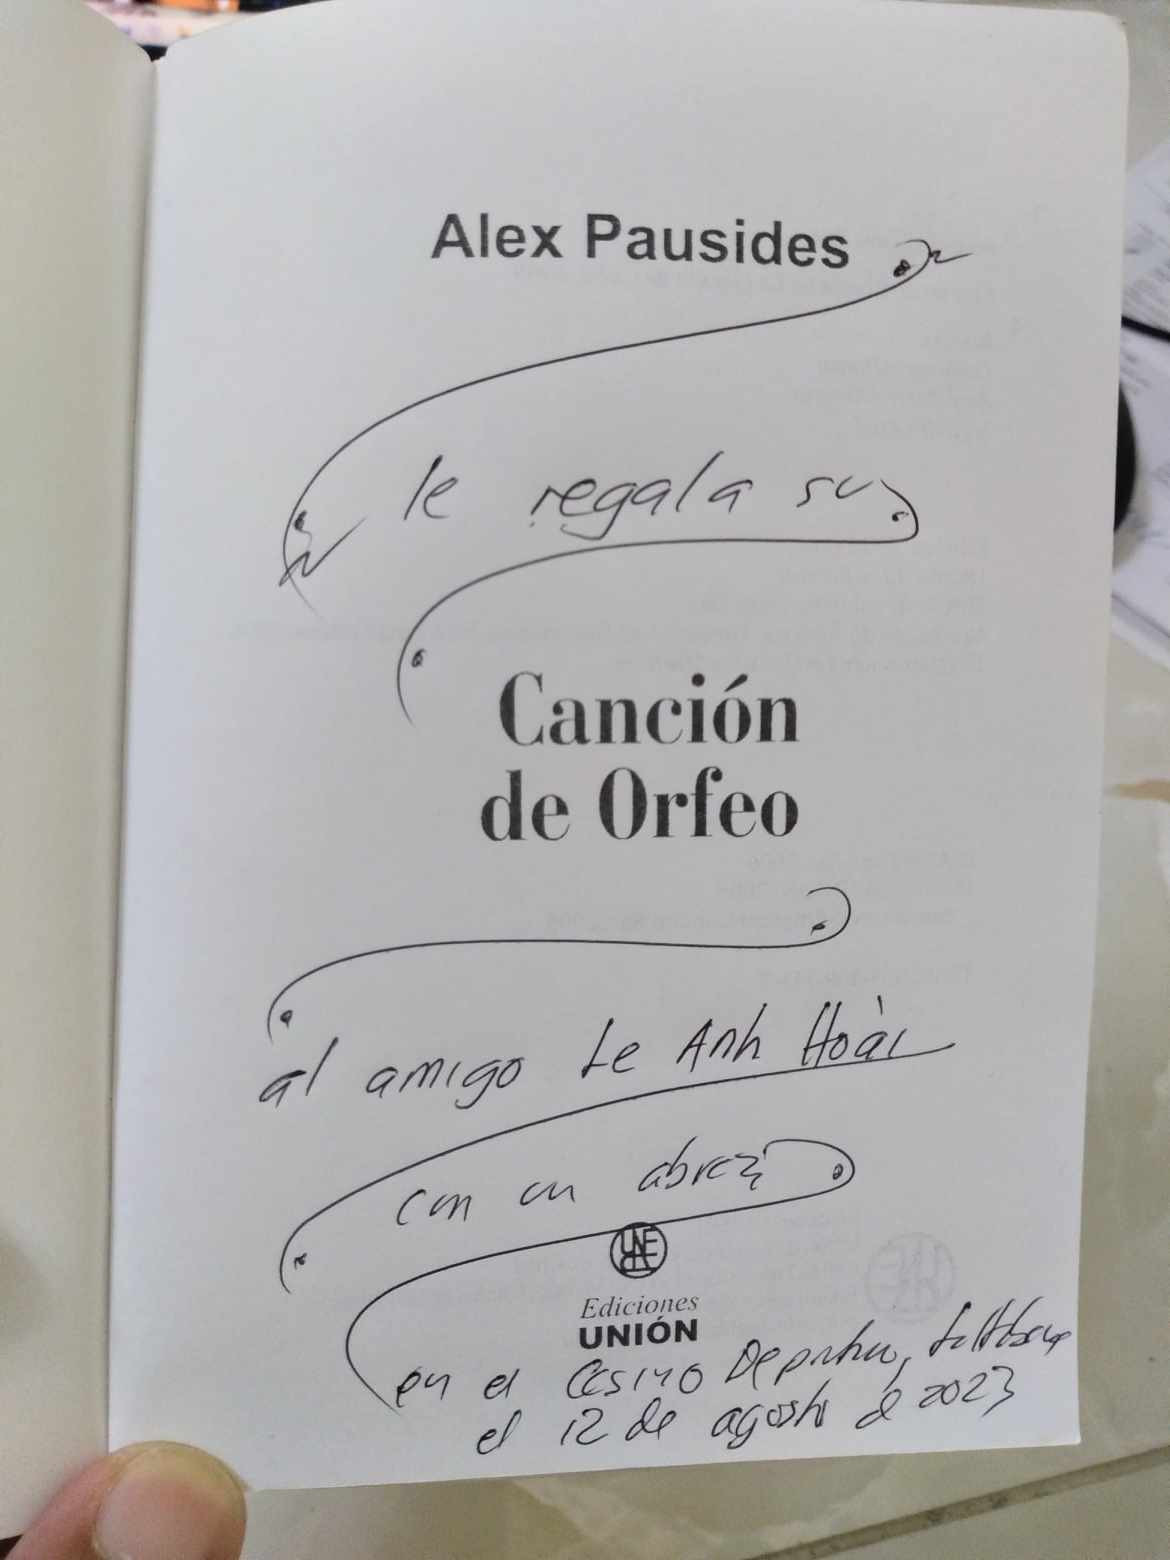 Alex Pausides
le regala su
Canción
de Orfeo
al amigo Le Anh Hoài
con un abrazo
UNE
Ediciones
UNIÓN
en el Casino Deportivo,
el 12 de agosto de 2023